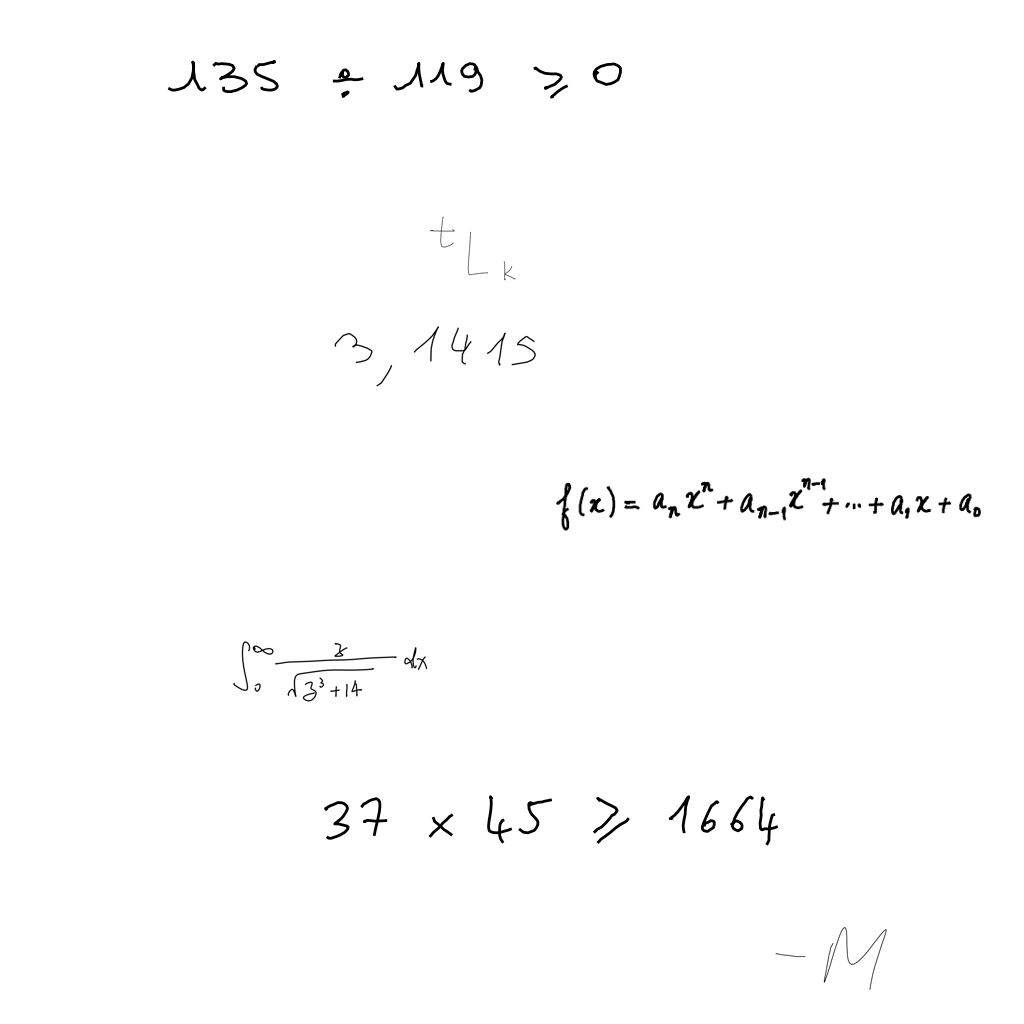 135 ÷ 119 ≥ 0
^t L_k
3,1415
f(x) = a_n x^n + a_{n-1} x^{n-1} + ... + a_1 x + a_0
\int_0^∞ \frac{z}{\sqrt{z^3+14}} dx
37 × 45 ≥ 1664
-M